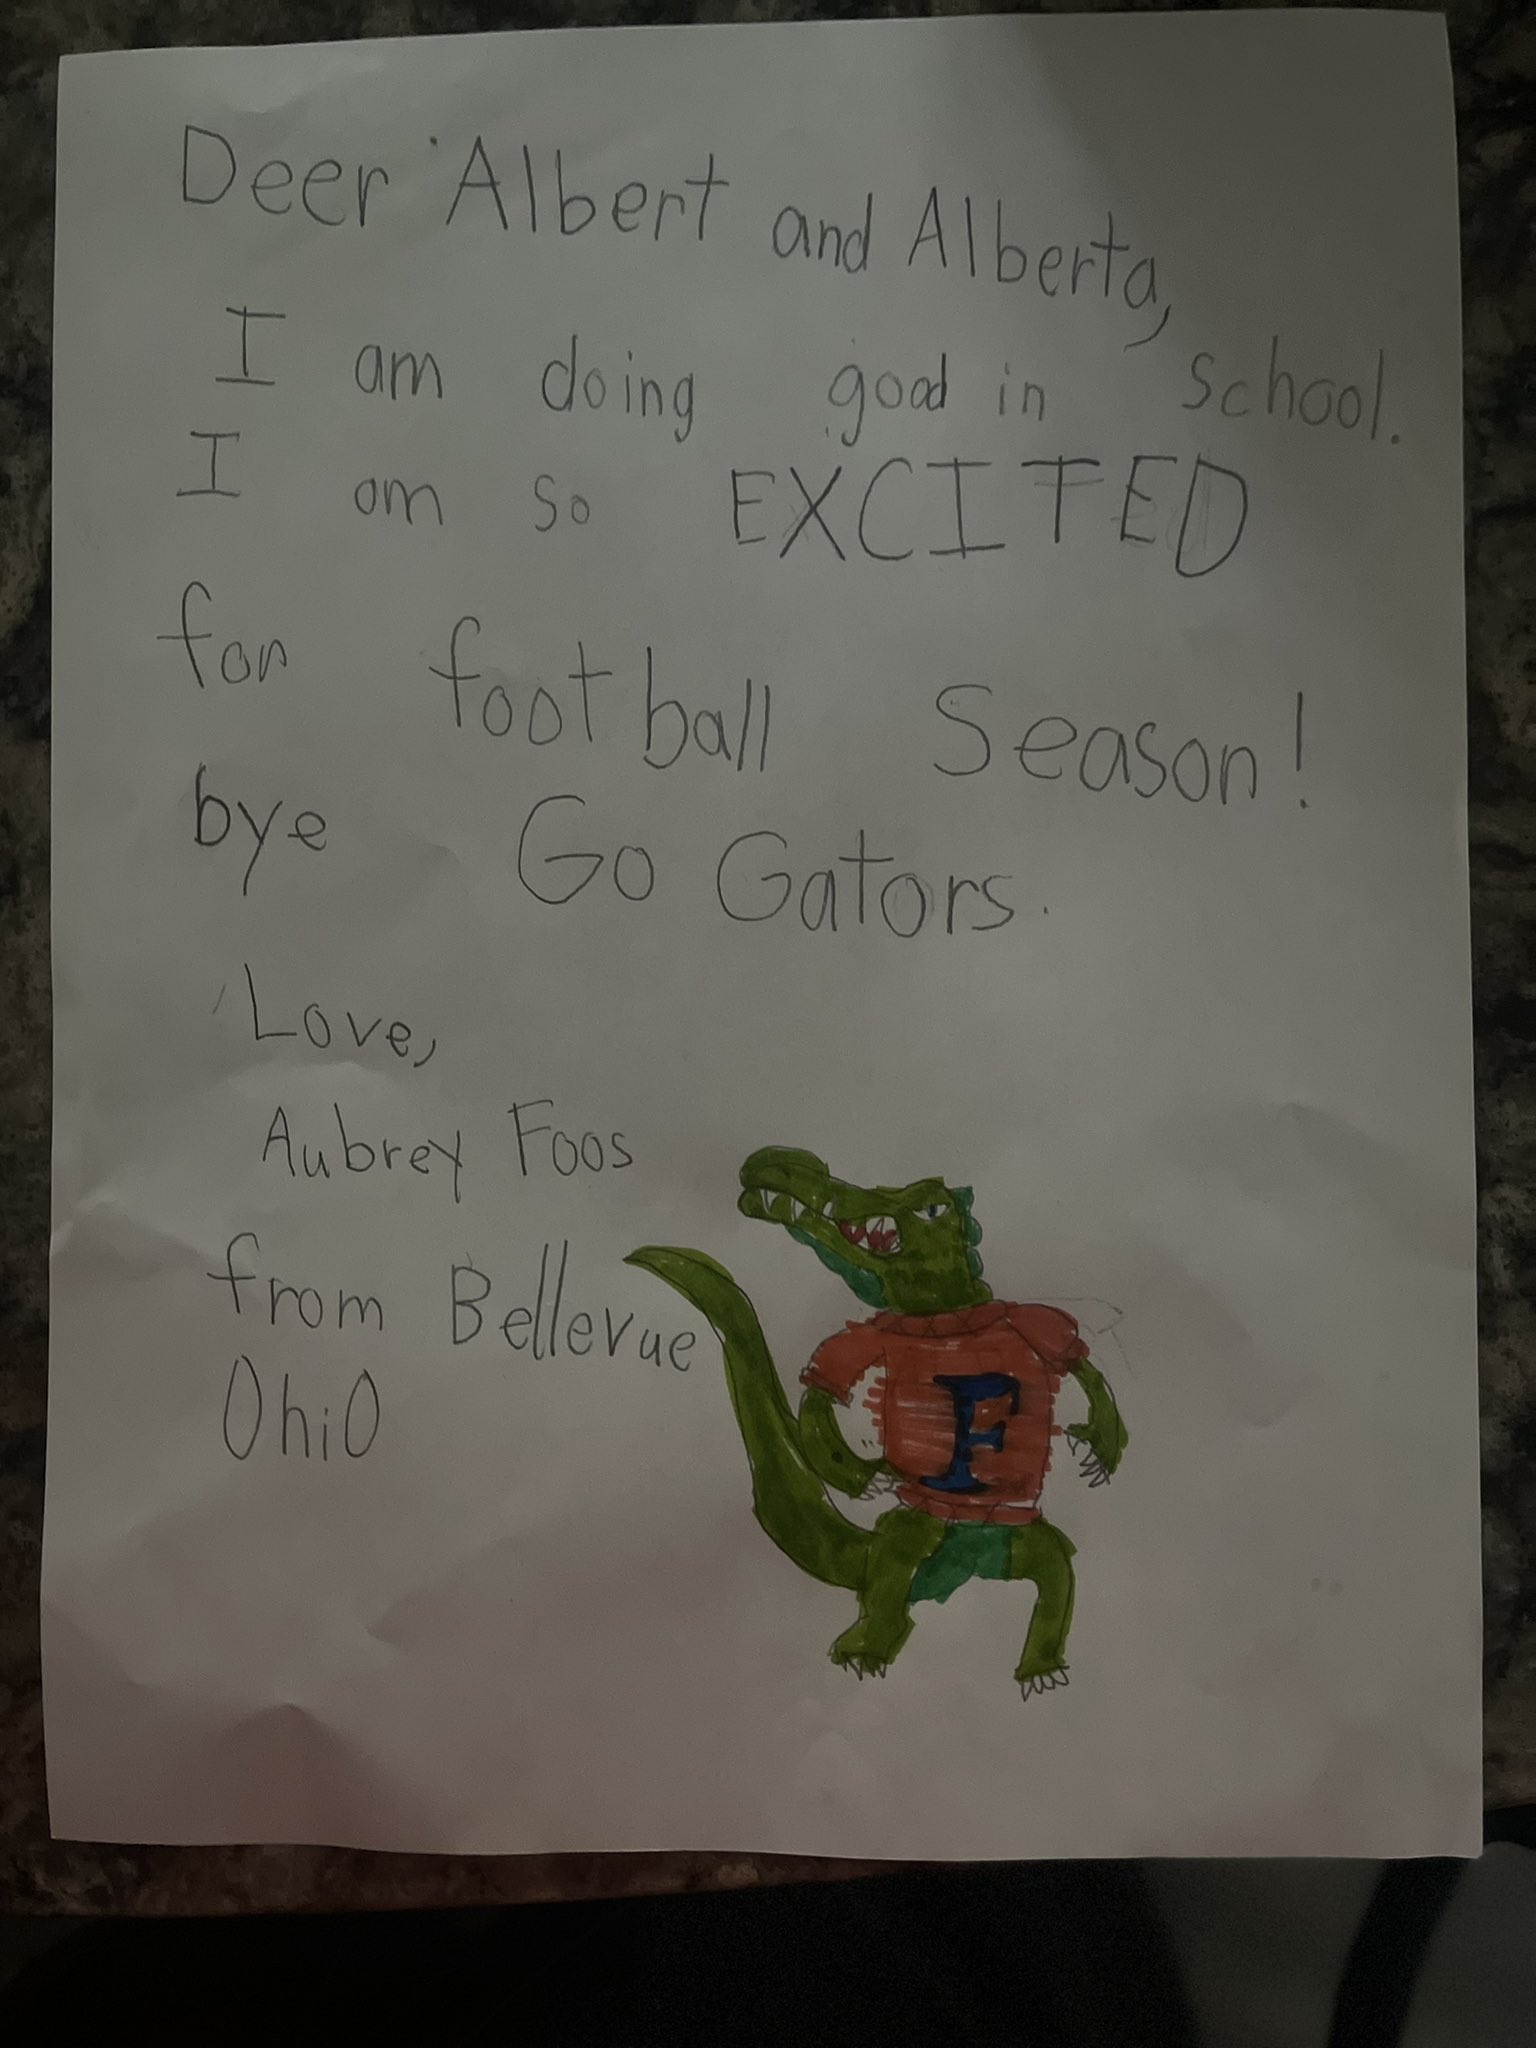 Deer Albert and Alberta,
I am doing good in school.
I am so EXCITED
for football Season!
bye Go Gators.
Love,
Aubrey Foos
from Bellevue
OhiO
F